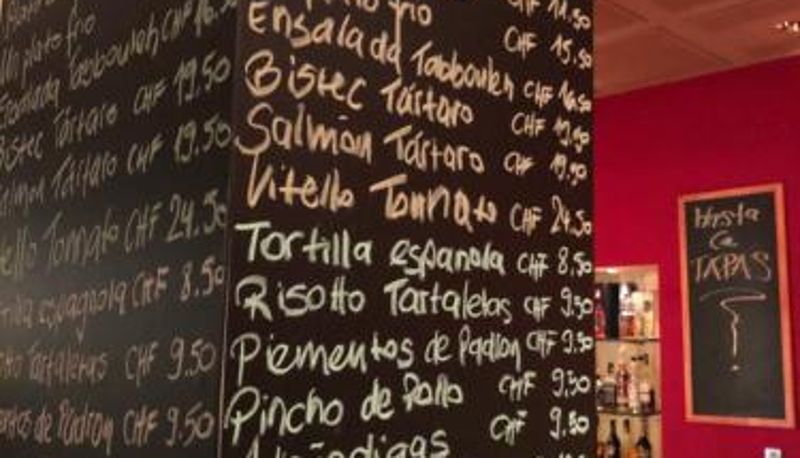 plato frio CHF 11.50
Ensalada Tabbouleh CHF 15.50
Bistec Tártaro CHF 16.50
Salmón Tártaro CHF 19.50
CHF 19.50
Vitello Tonnato CHF 24.50
Tortilla espanola CHF 8.50
Risotto Tartaletas CHF 9.50
Piementos de Padron CHF 9.50
Pincho de Pollo CHF 9.50
CHF 9.50
plato frio CHF 16.50
Tabbouleh
Bistec Tártaro CHF 19.50
Tártaro CHF 19.50
Tonnato CHF 24.50
espagnola CHF 8.50
Tartaletas CHF 9.50
de Padron CHF 9.50
Hasta
La
TAPAS